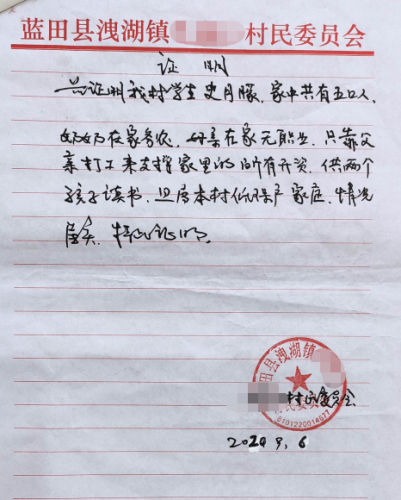 蓝田县洩湖镇 村民委员会
证明
兹证明我村学生史月朦,家中共有五口人,
奶奶在家务农,母亲在家无职业,只靠父
亲打工来支撑家里的所有开资,供两个
孩子读书,且属本村低保户家庭,情况
属实,特此证明。
田县洩湖镇
村民委员会
村民委员会
6101220014077
2020 9. 6